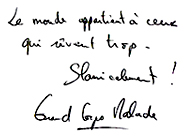 Le monde appartient à ceux
qui rêvent trop.
Slamicalement !
Grand Corps Malade